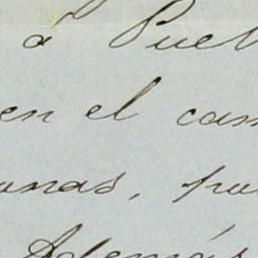 á Puebl
en el cam
unas, pa
Además